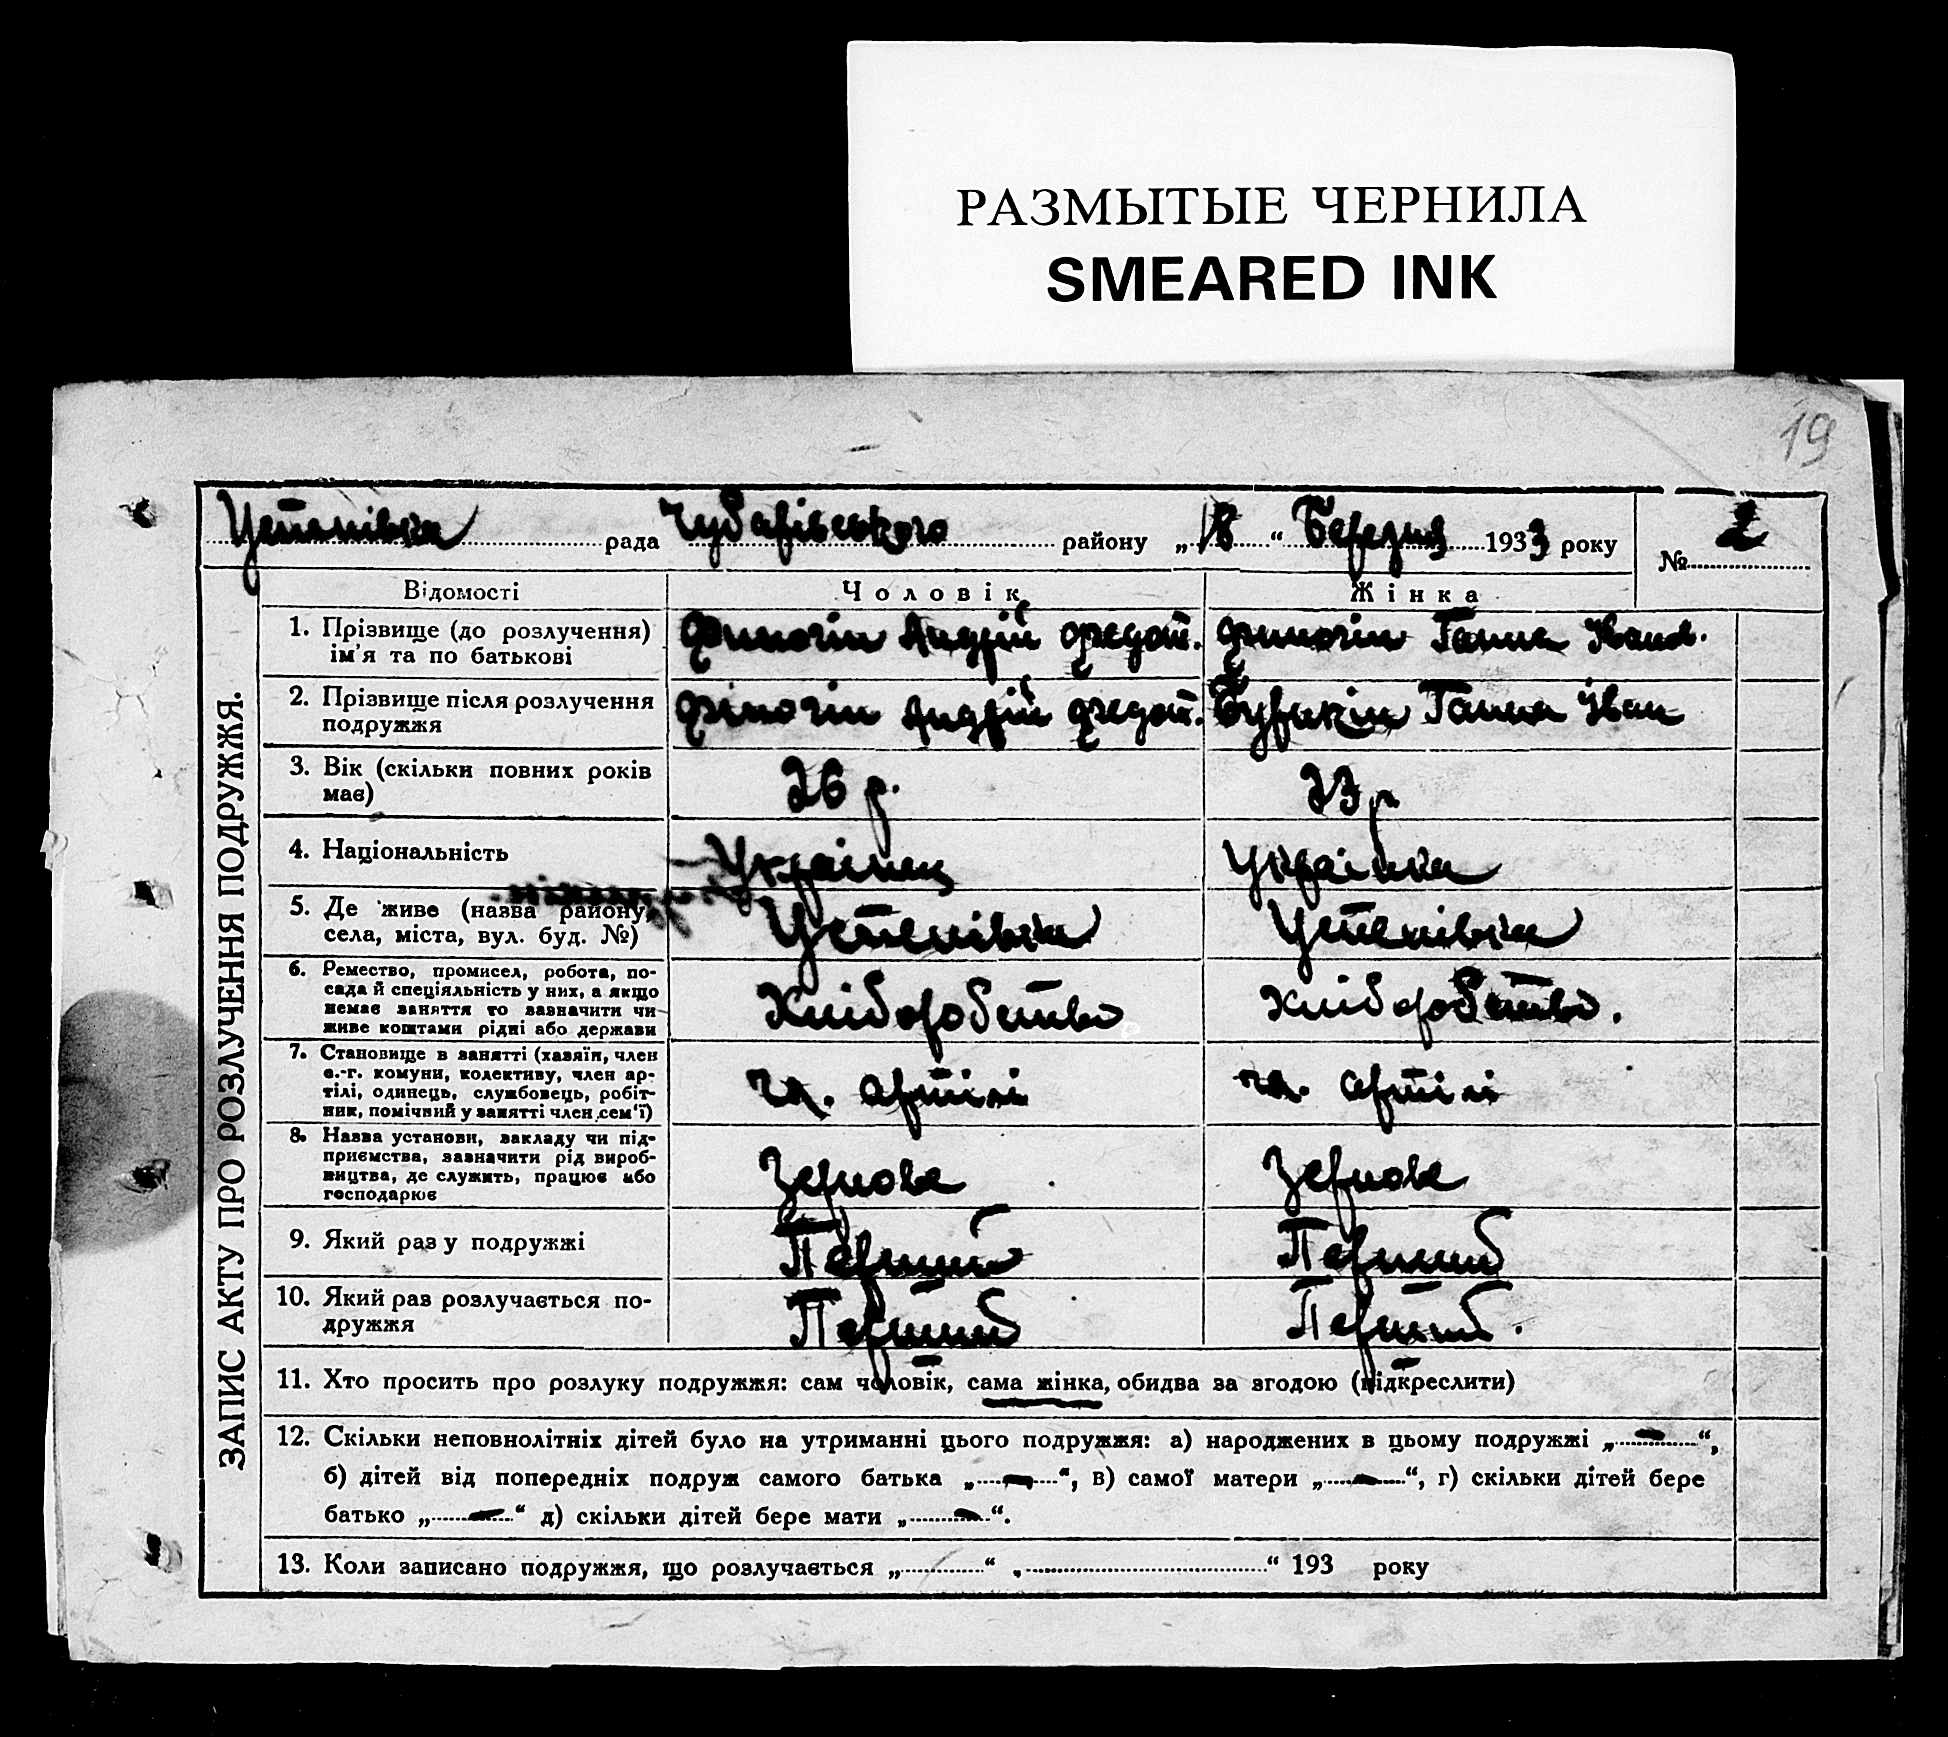 РАЗМЫТЫЕ ЧЕРНИЛА
SMEARED INK
19
рада Чубарівського району „18“ Березня 1933 року № 2
ЗАПИС АКТУ ПРО РОЗЛУЧЕННЯ ПОДРУЖЖЯ.
Відомості Чоловік Жінка
1. Прізвище (до розлучення) ім'я та по батькові Андрій Федот. Ганна Іван.
2. Прізвище після розлучення подружжя Андрій Федот. Ганна Іван
3. Вік (скільки повних років має) 26 р. 23 р
4. Національність Українец Українка
5. Де живе (назва району, села, міста, вул. буд. №)
6. Ремество, промисел, робота, по-
сада й спеціяльність у них, а якщо
немає заняття то зазначити чи
живе коштами рідні або держави
Хліборобство Хліборобство.
7. Становище в занятті (хазяїн, член
с.-г. комуни, колективу, член ар-
тілі, одинець, службовець, робіт-
ник, помічний у занятті член сем'ї)
чл. артілі чл. артілі
8. Назва установи, закладу чи під-
приємства, зазначити рід вироб-
ництва, де служить, працює або
господарює
Зернове Зернове
9. Який раз у подружжі Перший Перший
10. Який раз розлучається по-
дружжя Перший Перший.
11. Хто просить про розлуку подружжя: сам чоловік, сама жінка, обидва за згодою (підкреслити)
12. Скільки неповнолітніх дітей було на утриманні цього подружжя: а) народжених в цьому подружжі „—“,
б) дітей від попередніх подруж самого батька „—“, в) самої матери „—“, г) скільки дітей бере
батько „—“ д) скільки дітей бере мати „—“.
13. Коли записано подружжя, що розлучається „.....“ ..........“ 193 року